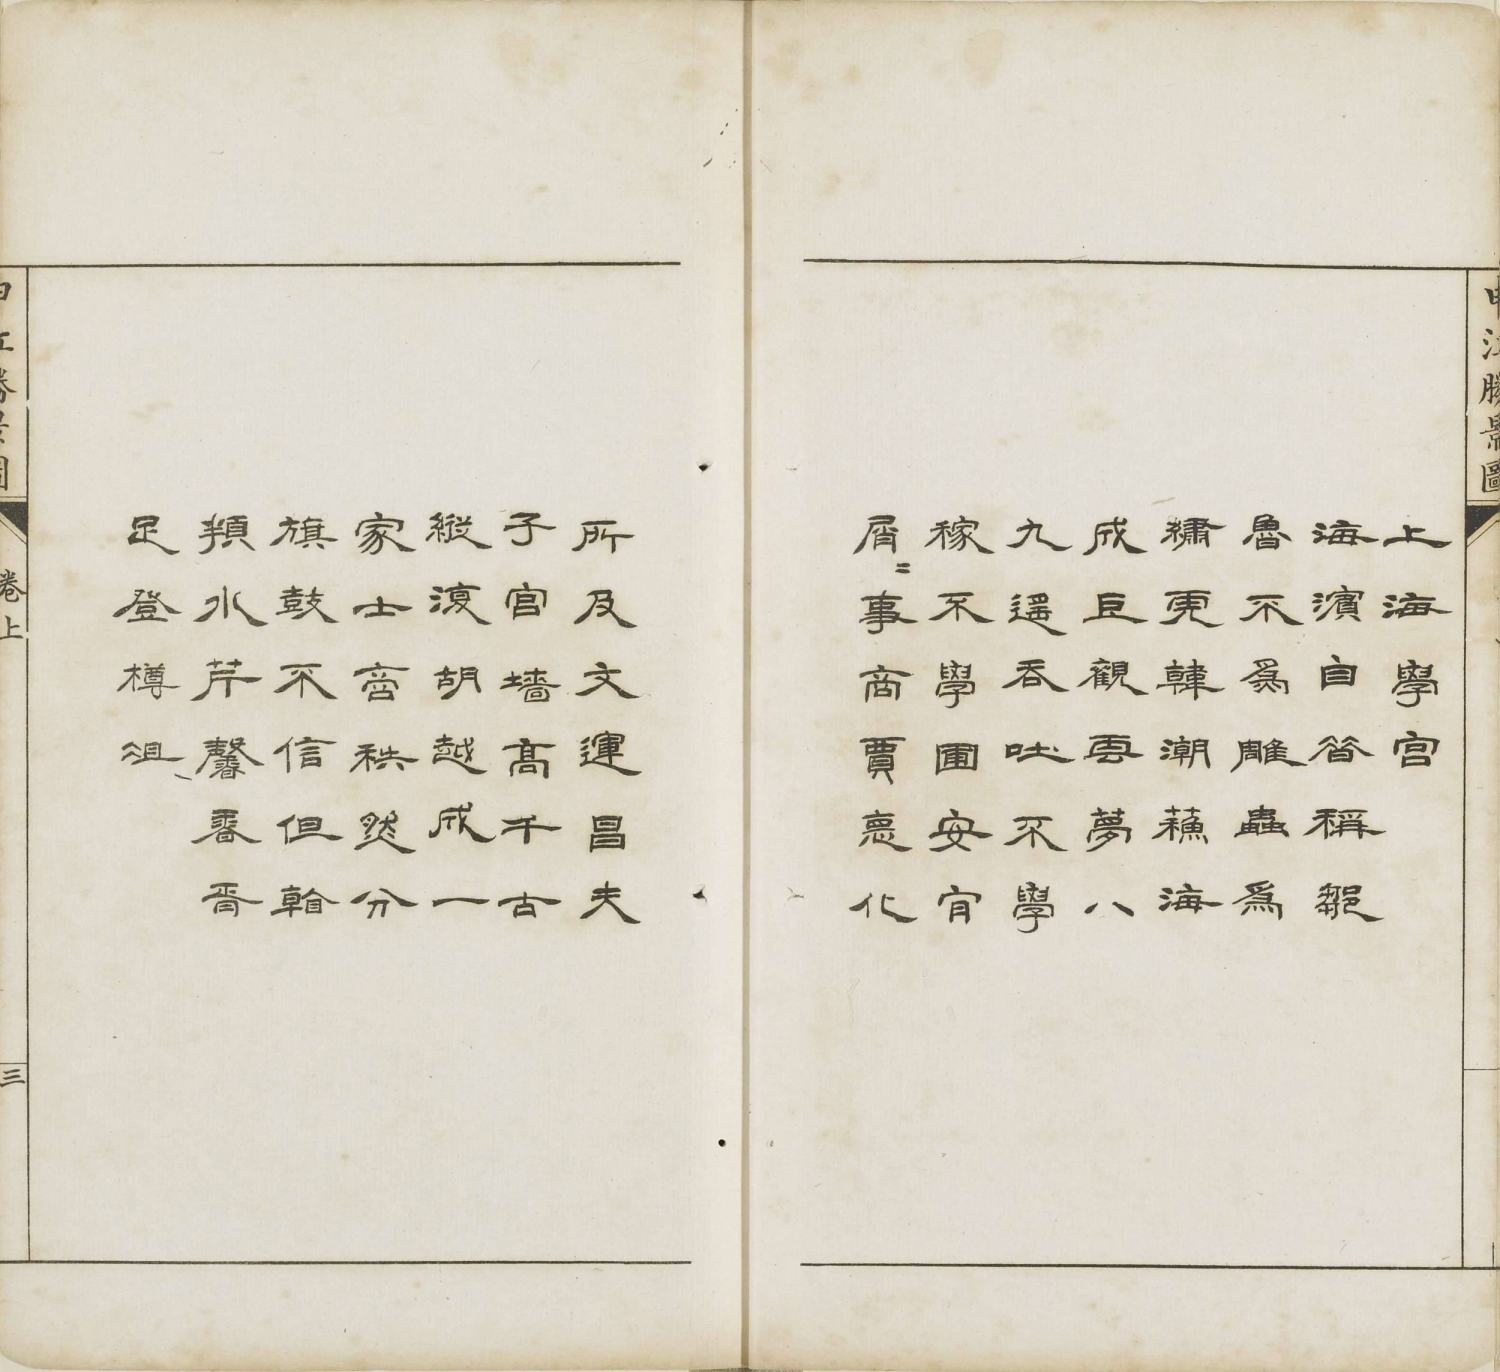 申江勝景圖
上海學宮
海濱自昔稱鄒
魯不爲雕蟲爲
繡虎韓潮蘓海
成巨觀雲夢八
九遥吞吐不學
稼不學圃安肎
屑〻事商賈惪化
所及文運昌夫
子宮墻高千古
縱復胡越成一
家士商秩然分
旗鼓不信但看
頖水芹馨香胥
足登樽俎
申江勝景圖
卷上
三